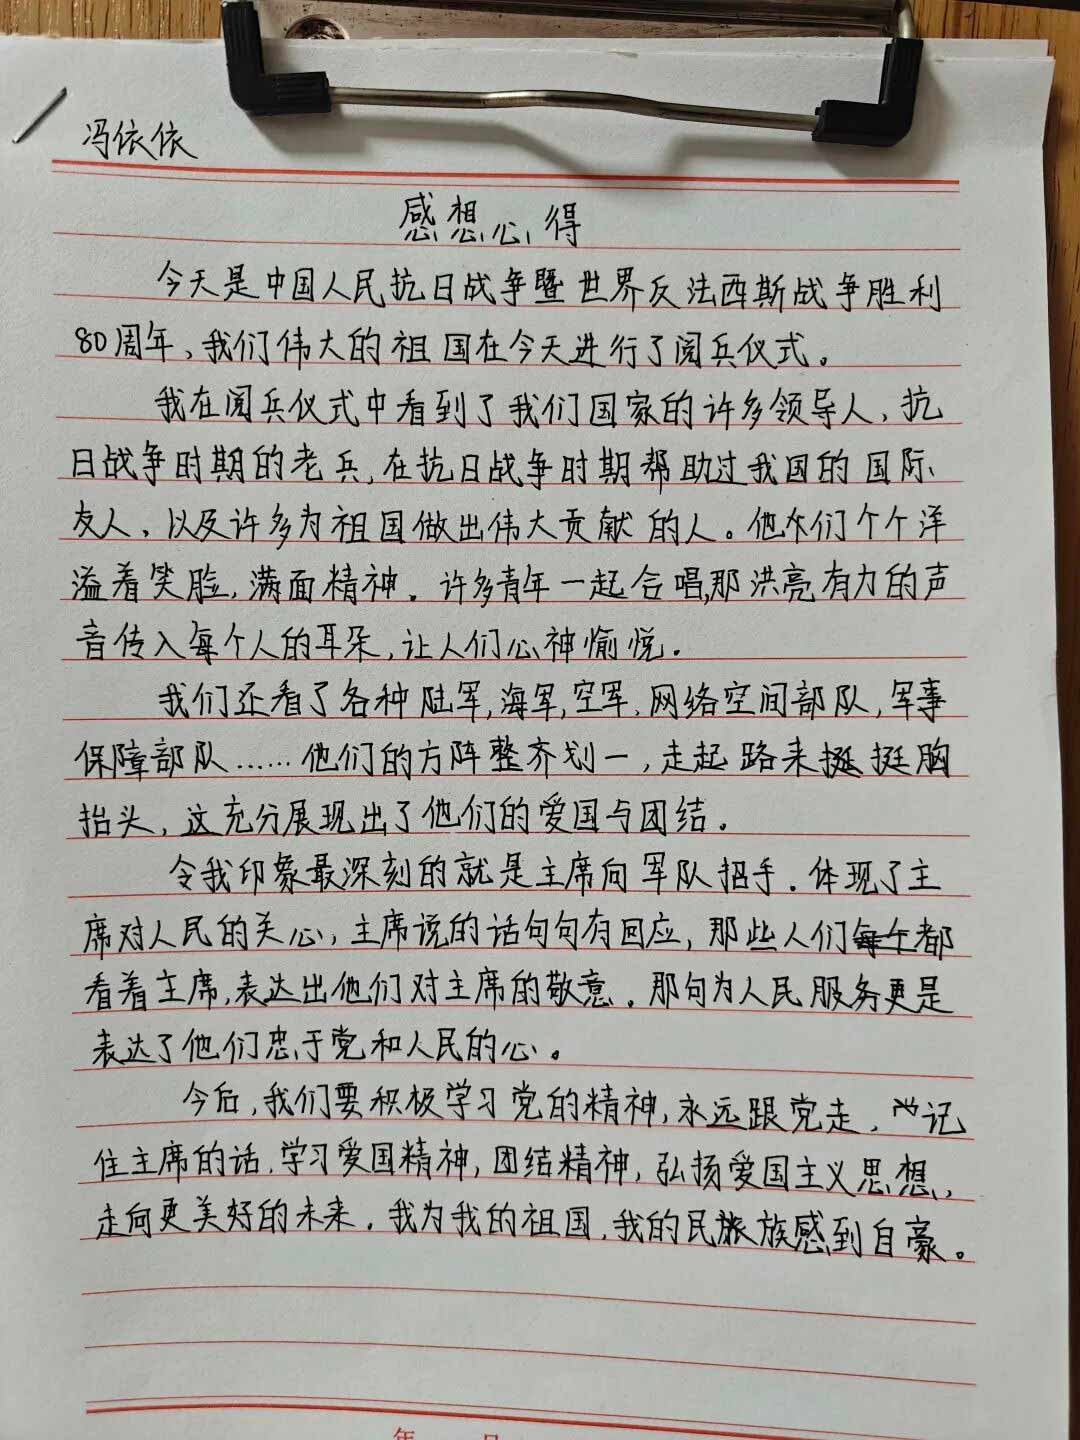 冯依依
感想心得
今天是中国人民抗日战争暨世界反法西斯战争胜利
80周年，我们伟大的祖国在今天进行了阅兵仪式。
我在阅兵仪式中看到了我们国家的许多领导人，抗
日战争时期的老兵，在抗日战争时期帮助过我国的国际
友人，以及许多为祖国做出伟大贡献的人。他们个个洋
溢着笑脸，满面精神。许多青年一起合唱，那洪亮有力的声
音传入每个人的耳朵，让人们心神愉悦。
我们还看了各种陆军，海军，空军，网络空间部队，军事
保障部队……他们的方阵整齐划一，走起路来挺挺胸
抬头，这充分展现出了他们的爱国与团结。
令我印象最深刻的就是主席向军队招手。体现了主
席对人民的关心，主席说的话句句有回应，那些人们每个都
看着主席，表达出他们对主席的敬意。那句为人民服务更是
表达了他们忠于党和人民的心。
今后，我们要积极学习党的精神，永远跟党走，记
住主席的话，学习爱国精神，团结精神，弘扬爱国主义思想，
走向更美好的未来。我为我的祖国，我的民族感到自豪。
年 月